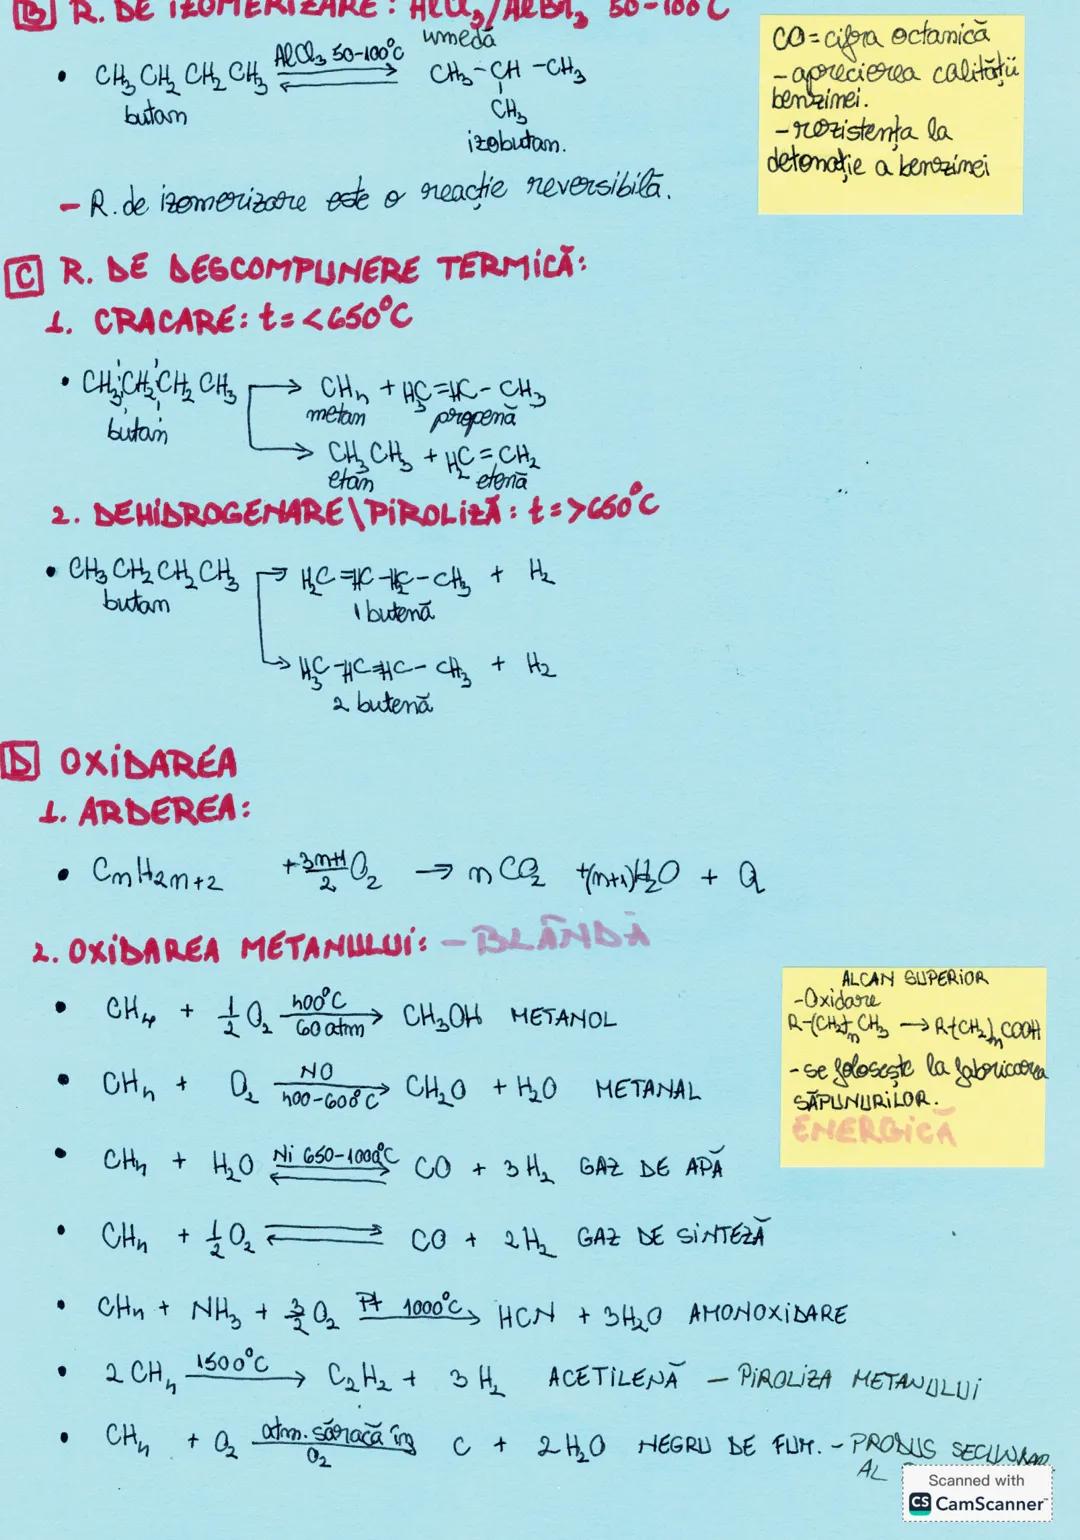 B R. DE IZOMERIZARE: AlCl3/AlBr3 50-100°C
umedă
• CH3 CH2 CH2 CH3 AlCl3 50-100°C ⇄ CH3-CH-CH3
CH3
butan
izobutan.
- R. de izomerizare este o reacție reversibilă.
CO = cifra octanică
- aprecierea calității
benzinei.
- rezistența la
detonație a benzinei
C R. DE DESCOMPUNERE TERMICĂ:
1. CRACARE: t=<650°C
• CH3 CH2 CH2 CH3 → CH4 + H2C=HC-CH3
butan metan propenă
→ CH3 CH3 + H2C=CH2
etan etenă
2. DEHIDROGENARE\PIROLIZĂ: t=>650°C
• CH3 CH2 CH2 CH3 → H2C=HC-H2C-CH3 + H2
butan 1 butenă
→ H3C-HC=HC-CH3 + H2
2 butenă
D OXIDAREA
1. ARDEREA:
• CnH2n+2 + 3n+1/2 O2 → n CO2 +(n+1)H2O + Q
2. OXIDAREA METANULUI: - BLÂNDĂ
• CH4 + 1/2 O2 400°C 60 atm → CH3OH METANOL
• CH4 + O2 NO 400-600°C → CH2O + H2O METANAL
• CH4 + H2O Ni 650-1000°C ⇄ CO + 3H2 GAZ DE APĂ
• CH4 + 1/2 O2 ⇄ CO + 2H2 GAZ DE SINTEZĂ
• CH4 + NH3 + 3/2 O2 Pt 1000°C → HCN + 3H2O AMONOXIDARE
• 2 CH4 1500°C → C2H2 + 3 H2 ACETILENĂ - PIROLIZA METANULUI
• CH4 + O2 atm. săracă în O2 C + 2H2O NEGRU DE FUM. - PRODUS SECUNDAR
AL
ALCAN SUPERIOR
- Oxidare
R-(CH2)n CH3 → R-(CH2)n COOH
- se folosește la fabricarea
SĂPUNURILOR.
ENERGICĂ
Scanned with
CS CamScanner™